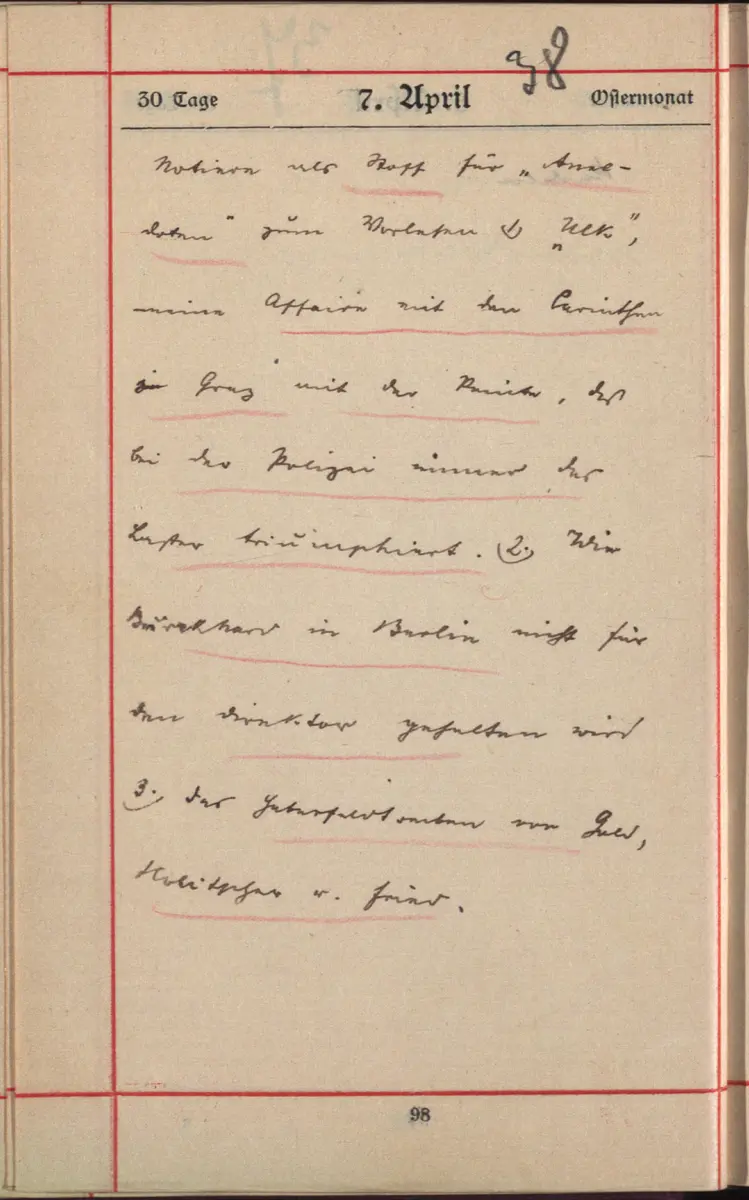 38
30 Tage 7. April Ostermonat
Notiere als Stoff für „Anek-
doten" zum Vorlesen 1) „Ulk",
meine Affaire mit den Corinthen
in Graz mit der Pointe, daß
bei der Polizei immer das
Laster triumphiert. 2.) Wie
Burckhard in Berlin nicht für
den Direktor gehalten wird
3.) das Haberfeldtreiben von Gold,
Holitscher u. Fried.
98